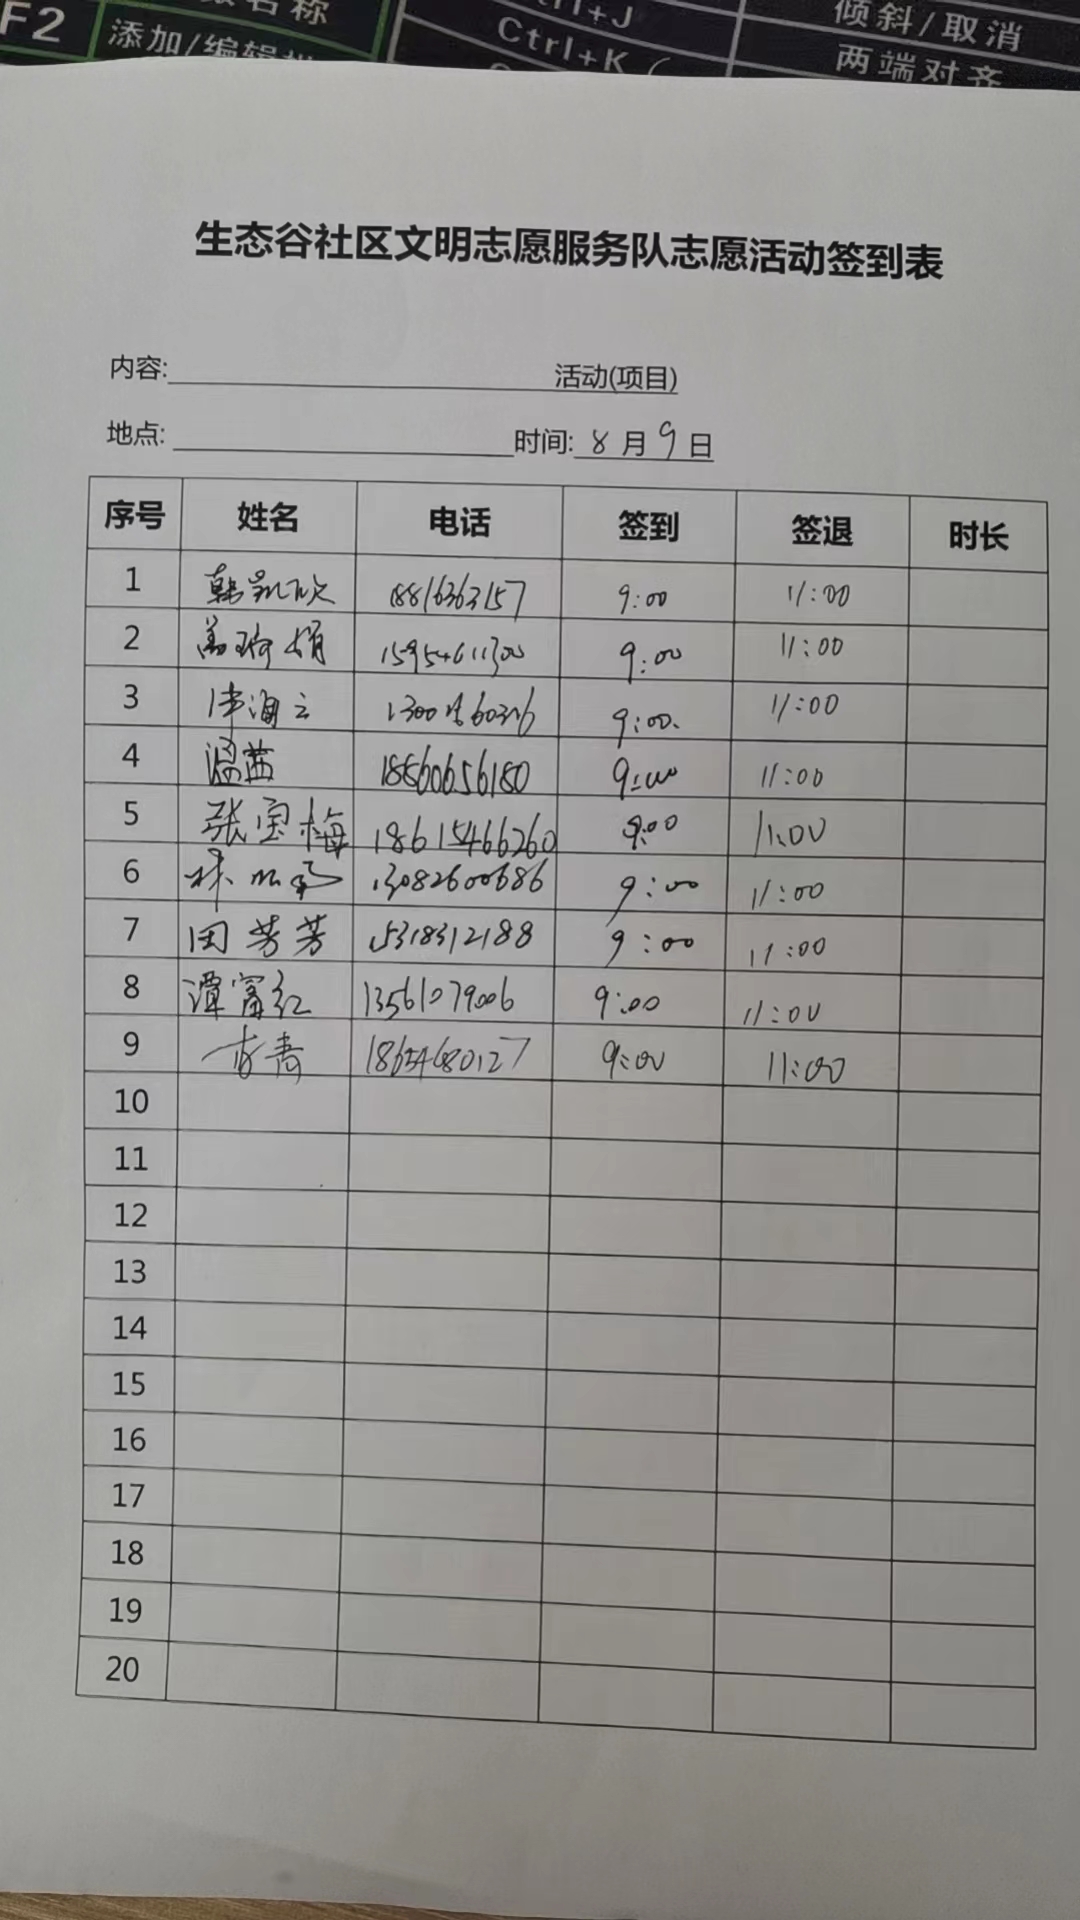 F2
名称
添加/编辑
Ctrl+J
Ctrl+K
倾斜/取消
两端对齐
生态谷社区文明志愿服务队志愿活动签到表
内容: 活动(项目)
地点: 时间: 8月9日
序号 姓名 电话 签到 签退 时长
1 9:00 11:00
2 15954611300 9:00 11:00
3 9:00 11:00
4 温茜 18560656180 9:00 11:00
5 张宝梅 18615466260 9:00 11:00
6 13082600686 9:00 11:00
7 田芳芳 15318312188 9:00 11:00
8 谭富红 13561079006 9:00 11:00
9 18654680127 9:00 11:00
10
11
12
13
14
15
16
17
18
19
20